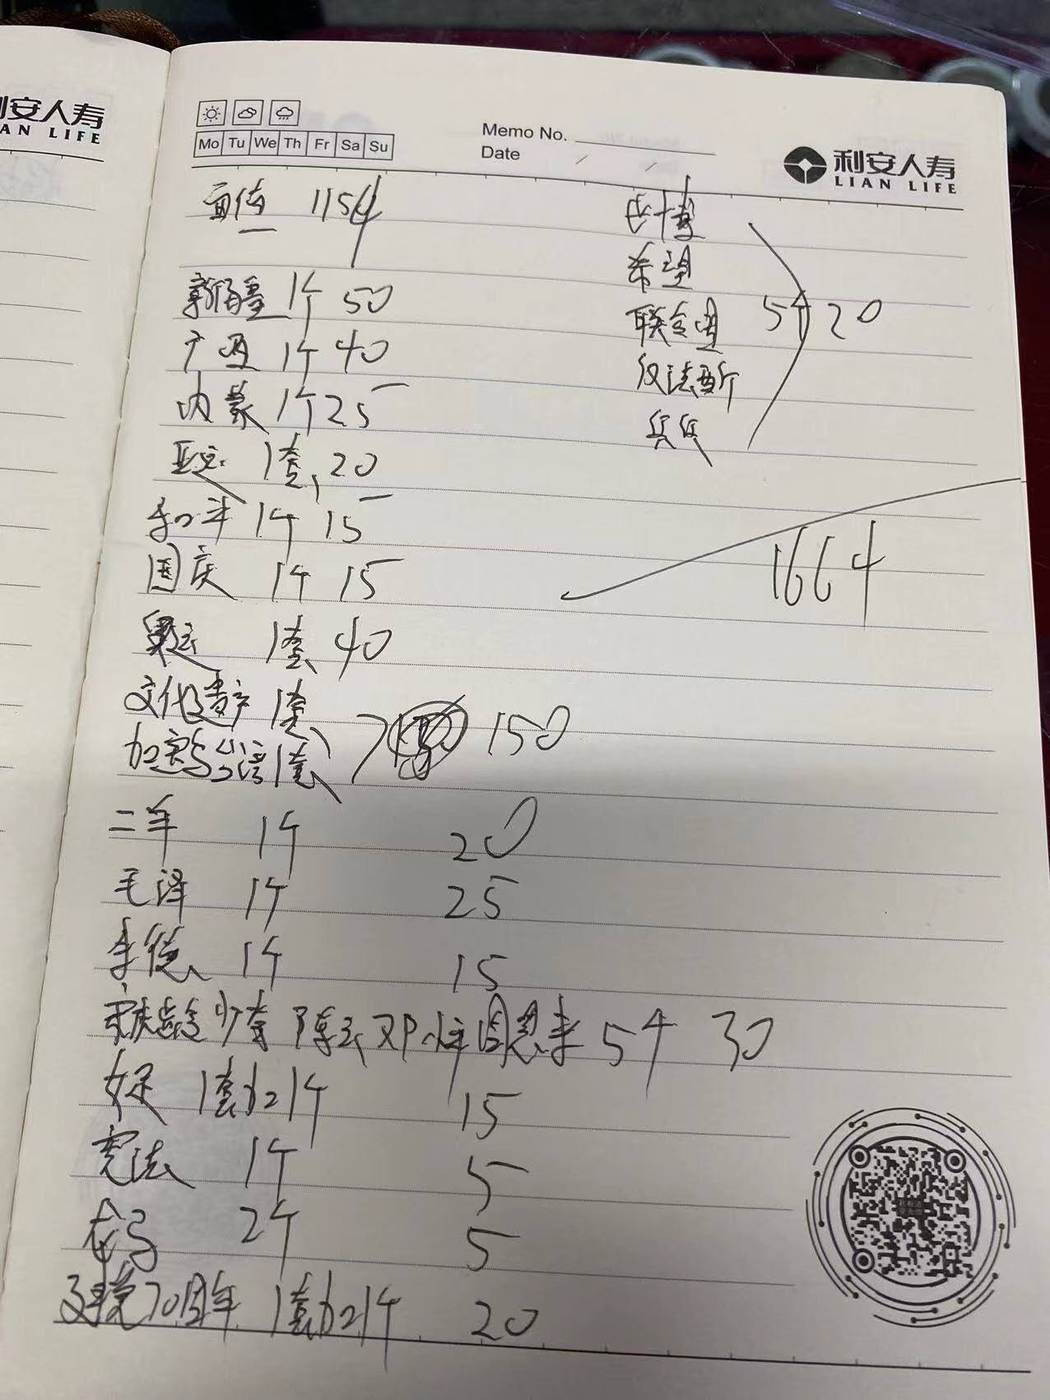 利安人寿
LIAN LIFE
Mo Tu We Th Fr Sa Su
Memo No.
Date
利安人寿
LIAN LIFE
面值 1154
新疆 1个 50
广西 1个 40
内蒙 1个 25
亚运 1套 20
和平 1个 15
国庆 1个 15
奥运 1套 40
文化遗产 1套
加宝岛台湾 1套 150
二年 1个 20
毛泽 1个 25
朱德 1个 15
宋庆龄 少奇 陈云 邓小平 周恩来 5个 30
女足 1套加1个 15
宪法 1个 5
龙马 2个 5
建党70周年 1套加1个 20
世博
希望
联合国 5个 20
1664